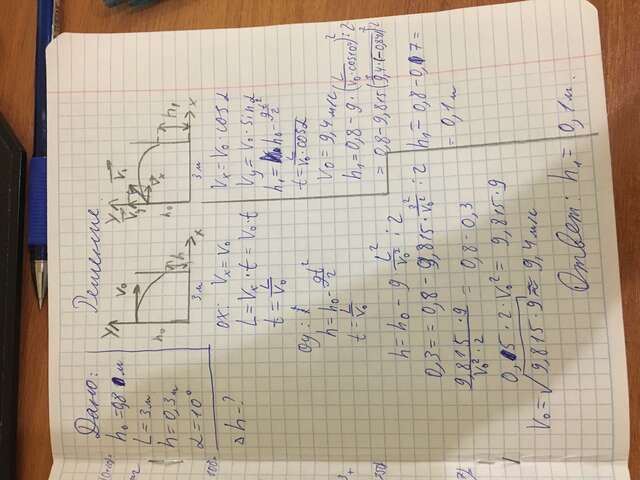 Дано:
h₀=0,8 м
L=3м
h=0,3м
α=10°
Δh-?
Решение
Y
V₀
h₀
h
3м
X
Y
V₁
Vₓ
h₀
h₁
3м
X
ox: Vₓ=V₀
L=Vₓ·t=V₀·t
t=L/V₀
oy:
h=h₀-gt²/2
t=L/V₀
h=h₀-g L²/V₀²:2
0,3=0,8-9,815·3²/V₀²:2
9,815·9/V₀²·2=0,8-0,3
0,5·2·V₀²=9,815·9
V₀=√9,815·9≈9,4м/с
Vₓ=V₀·cosα
Vy=V₀·sinα
h₁=h₀-gt²/2
t=L/V₀·cosα
V₀=9,4м/с
h₁=0,8-g·(L/V₀·cos10°)²:2
=0,8-9,815(3/9,4·(-0,84))²:2
h₁=0,8-0,7=
=0,1м
Ответ: h₁=0,1м.